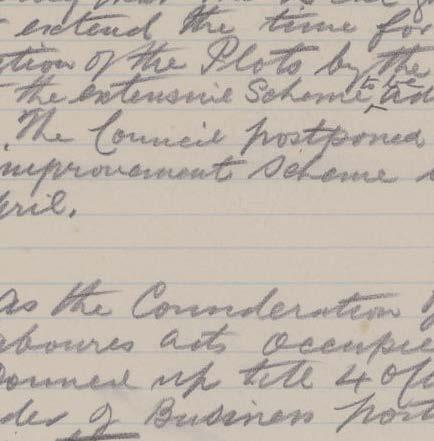 extend the time for
tion of the Plots by the
the extensive Scheme to be ad
The Council postponed
improvement Scheme
pril.
as the Consideration of
aboures acts occupie
Council up till 4 O'C
der of Business post